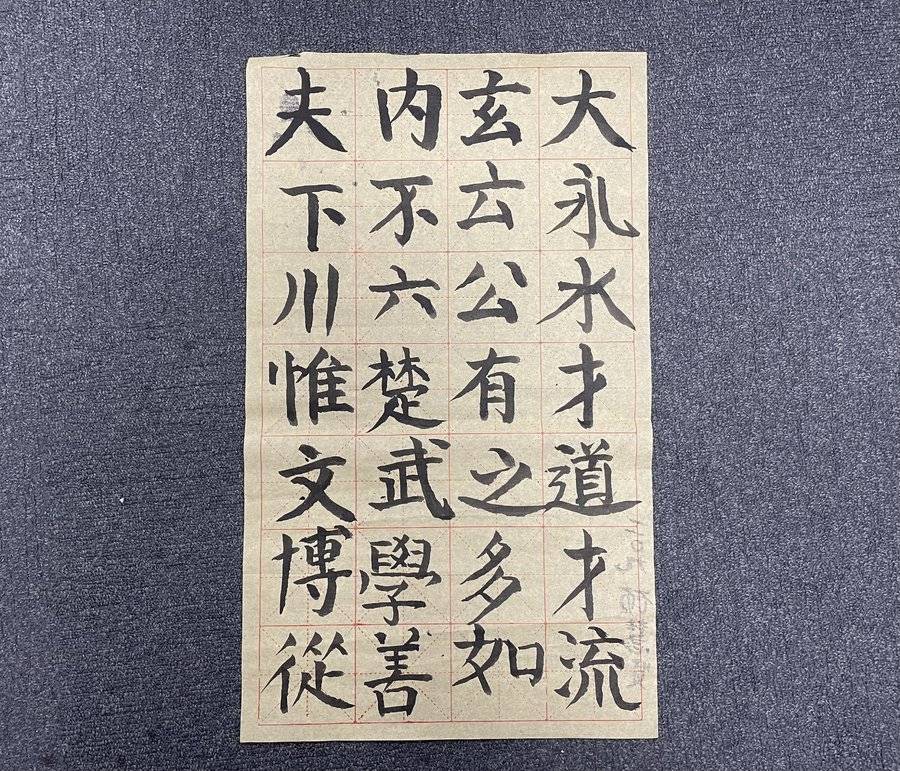 大永水才道才流
玄云公有之多如
内不六楚武學善
夫下川惟文博從